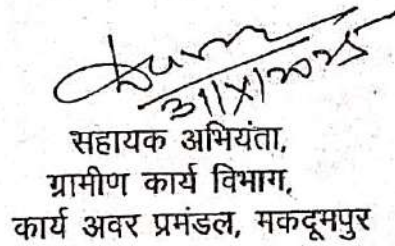 31/X/2025
सहायक अभियंता,
ग्रामीण कार्य विभाग,
कार्य अवर प्रमंडल, मकदूमपुर